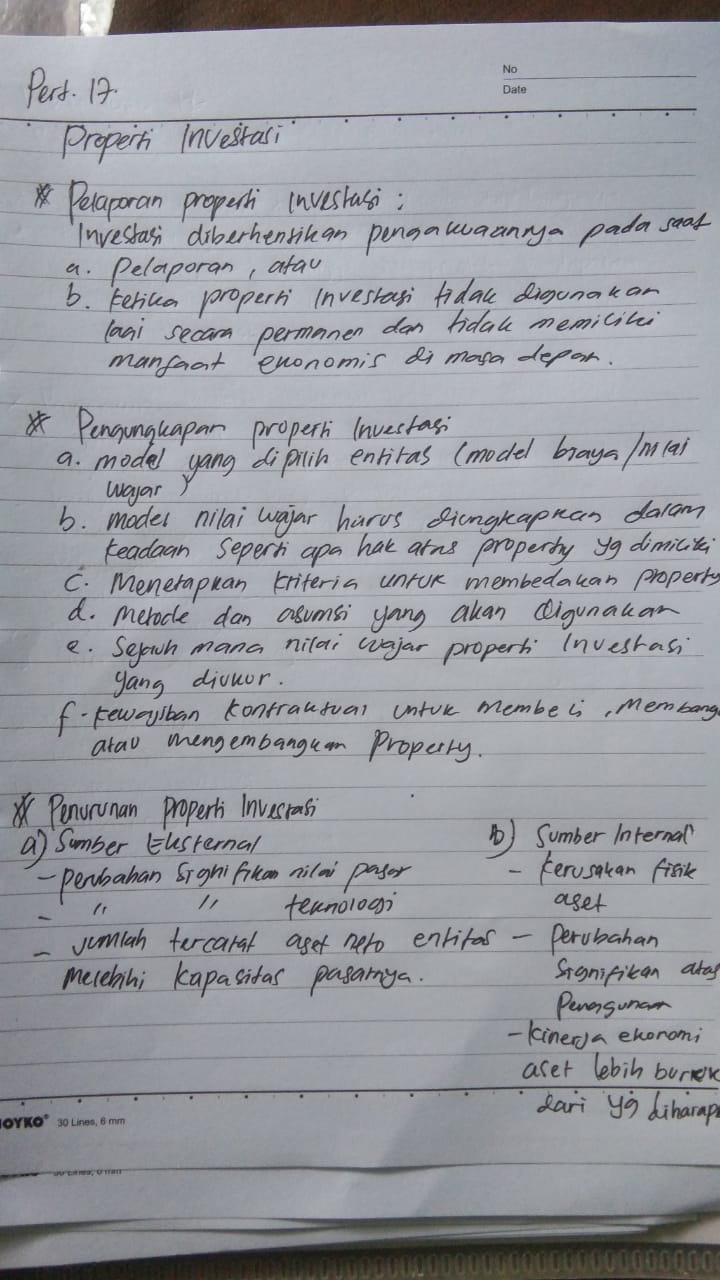 No
Date
Pert. 17.
Properti Investasi
* Pelaporan properti investasi :
Investasi diberhentikan pengakuaannya pada saat
a. Pelaporan, atau
b. ketika properti investasi tidak digunakan
lagi secara permanen dan tidak memiliki
manfaat ekonomis di masa depan.
* Pengungkapan properti investasi
a. model yang dipilih entitas (model biaya/nilai
wajar)
b. model nilai wajar harus diungkapkan dalam
keadaan seperti apa hak atas property yg dimiliki
c. Menetapkan kriteria untuk membedakan property
d. Metode dan asumsi yang akan digunakan
e. Sejauh mana nilai wajar properti investasi
yang diukur.
f. kewajiban kontraktual untuk membeli, membang
atau mengembangkan Property.
* Penurunan properti Investasi
a) Sumber Eksternal
- perubahan signifikan nilai pasar
- " " teknologi
- jumlah tercatat aset neto entitas
melebihi kapasitas pasarnya.
b) Sumber Internal
- kerusakan fisik
aset
- perubahan
signifikan atas
Penggunaan
- kinerja ekonomi
aset lebih buruk
dari yg diharap
OYKO® 30 Lines, 6 mm
30 Lines, 6 mm